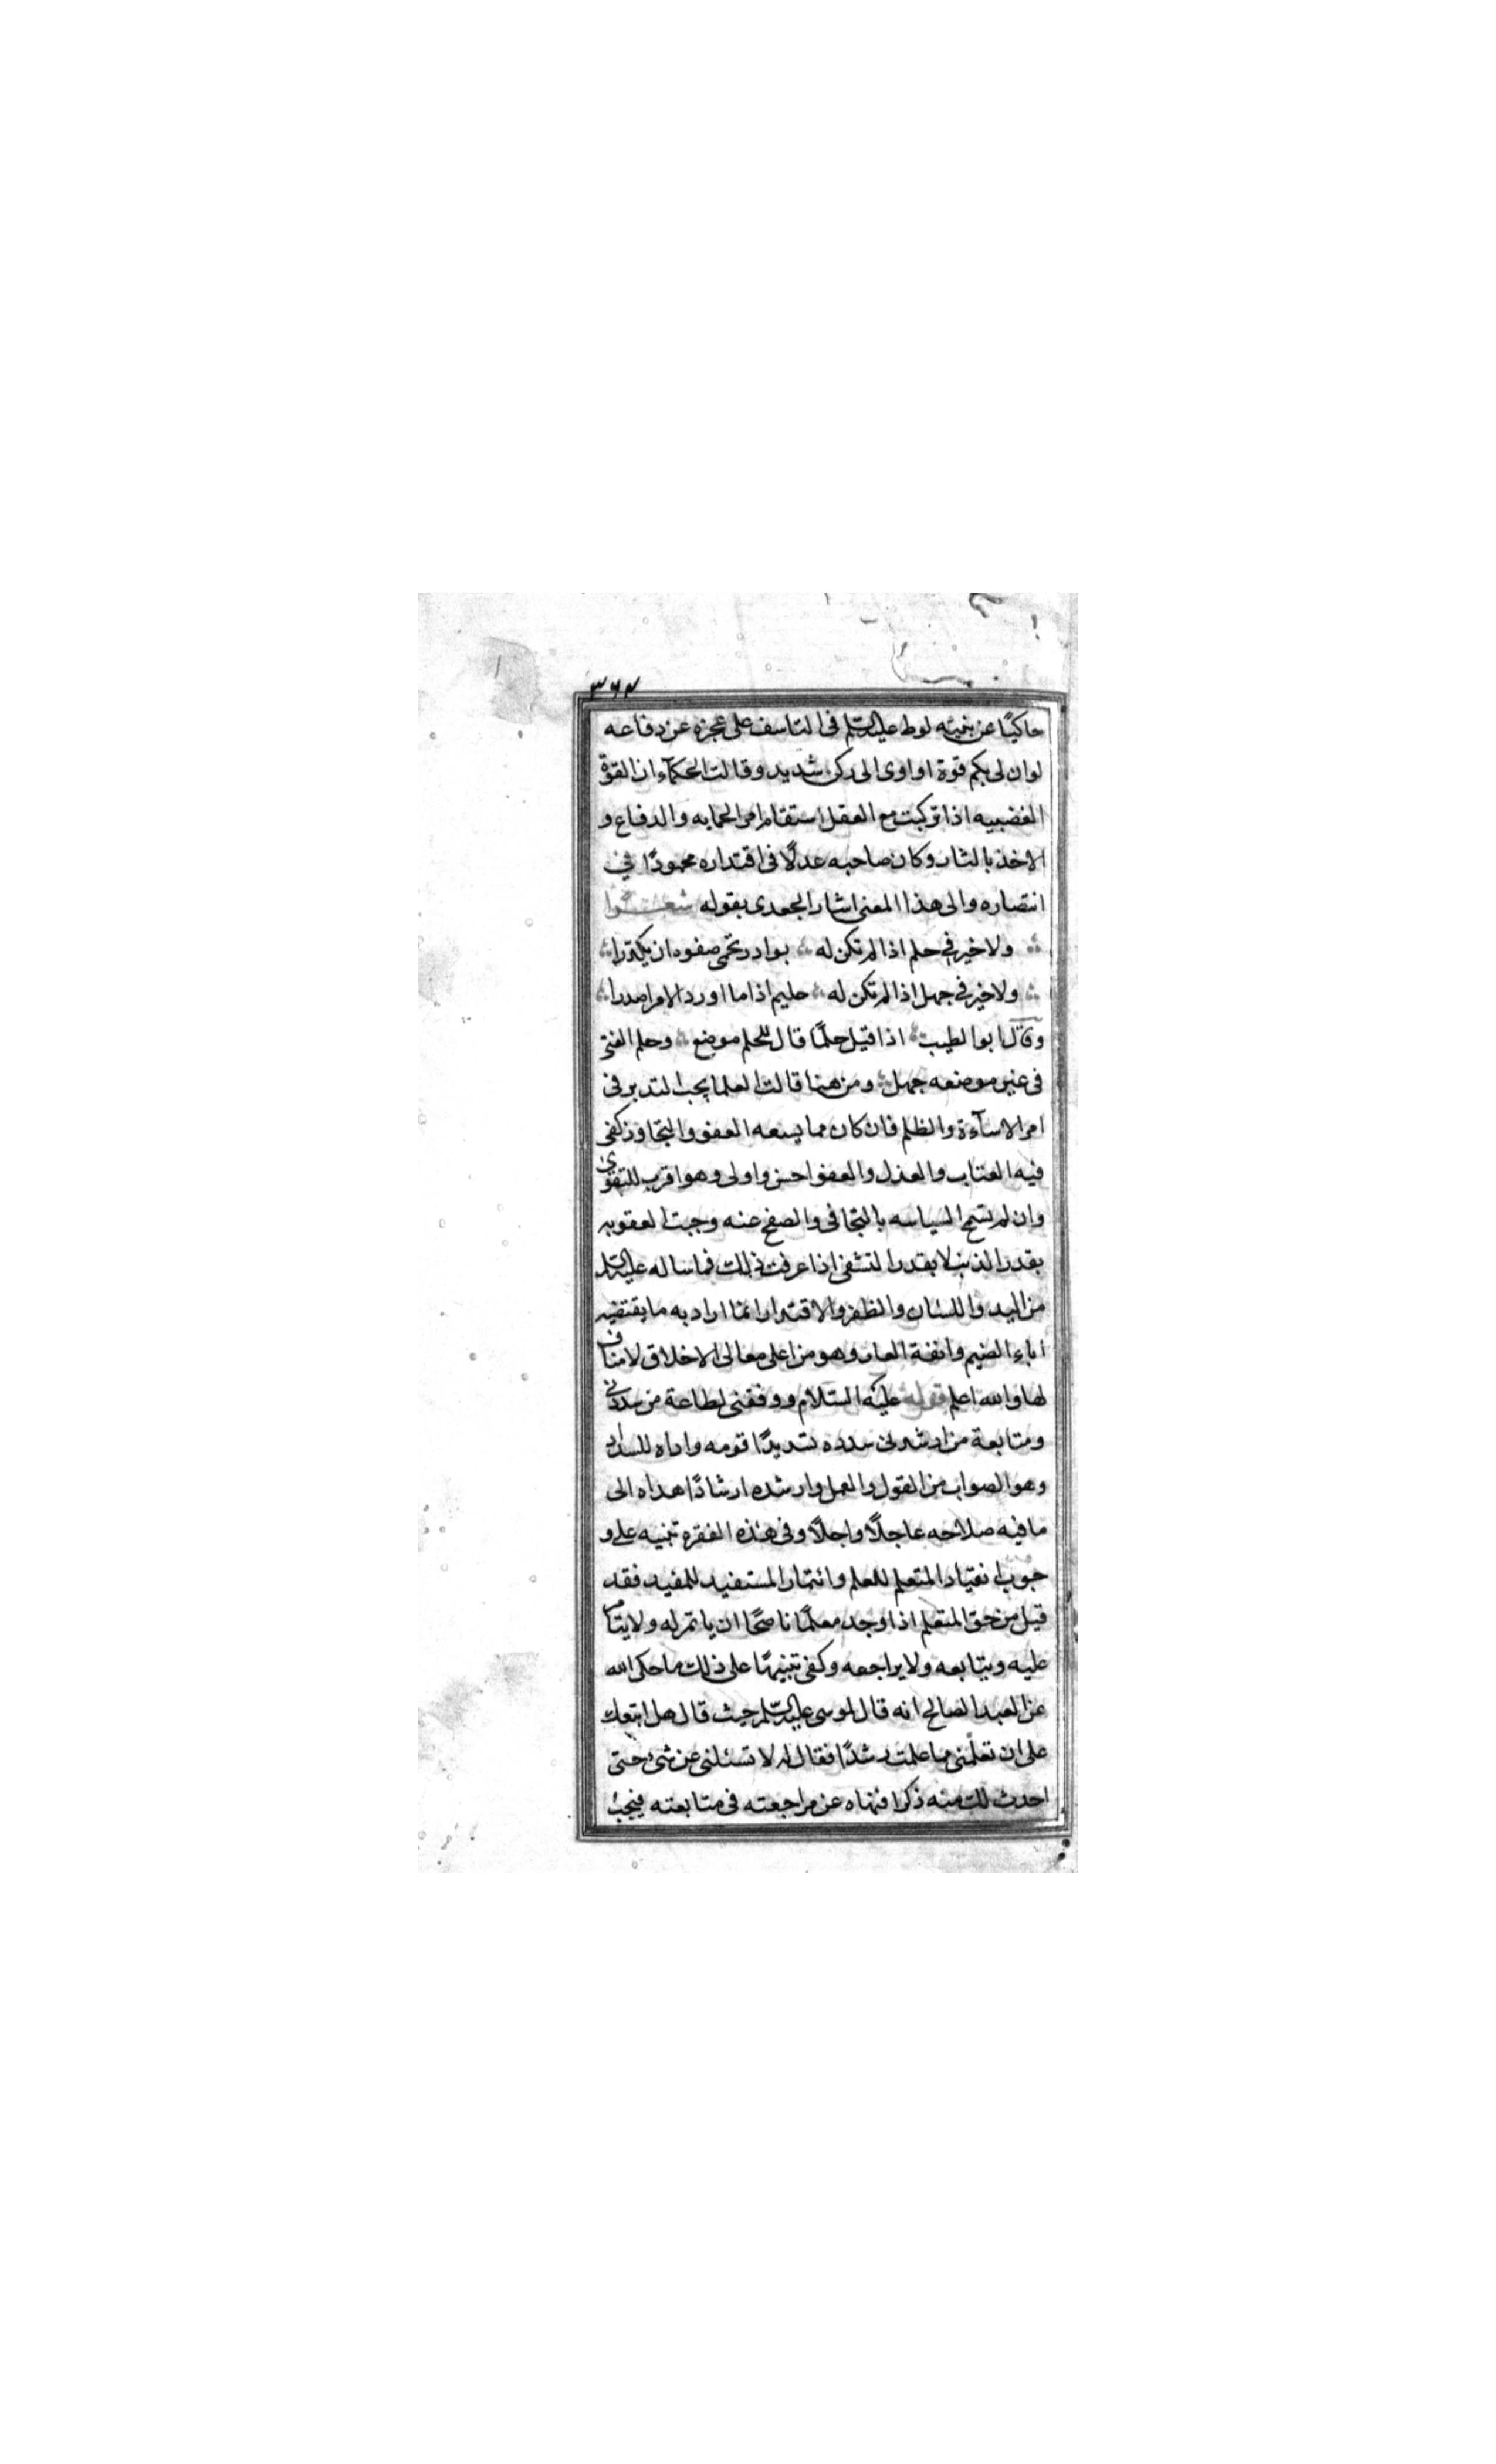 ٣٦٧
حاكيًا عن نبيّه لوط عليه السّلم فى التاسف على عجزه عن دفاعه
لو ان لى بكم قوة او اوى الى ركن شديد وقالت الحكمآء ان القوّة
الغضبيه اذا تركبت مع العقل استقام امر الحمايه والدفاع و
الاخذ بالثار وكان صاحبه عدلًا فى اقتداره محمودًا فى
انتصاره والى هذا المعنى اشار الجعدى بقوله شعـــرًا
ولا خير فى حلم اذا لم تكن له بوادر تحمى صفوه ان يكدّرا
ولا خير فى جهل اذا لم تكن له حليم اذا ما اورد الامر اصدرا
وقال ابو الطيب اذا قيل حلمًا قال للحلم موضع وحلم الفتى
فى غير موضعه جهل ومن هنا قالت العلما يجب التدبر فى
امر الاسآءة والظلم فان كان مما يسعه العفو والتجاوز كفى
فيه العتاب والعذل والعفو احسن واولى وهو اقرب للتقوىٰ
وان لم تسمح السياسه بالتجافى والصفح عنه وجبت العقوبه
بقدر الذنب لا بقدر التشفى اذا عرفت ذلك فما ساله عليه السّلم
من اليد واللسان والظفر والاقتدار انما اراد به ما يقتضيه
اباء الضيم وانفة العار وهو من اعلى معالى الاخلاق لا مناف
لها والله اعلم قوله عليه السّلام ووفقنى لطاعة من سددنى
ومتابعة من ارشدنى سدده تسديدًا قومه واراه للسداد
وهو الصواب من القول والعمل وارشده ارشادًا هداه الى
ما فيه صلاحه عاجلًا واجلًا وفى هذه الفقره تنبيه على و
جوب انقياد المتعلم للعلم وائتمار المستفيد للمفيد فقد
قيل من حق المتعلم اذا وجد معلمًا ناصحًا ان ياتمر له ولا يتامر
عليه ويتابعه ولا يراجعه وكفى تنبيهًا على ذلك ما حكى الله
عن العبد الصالح انه قال لموسى عليه السّلم حيث قال هل اتبعك
على ان تعلّمنى مما علمت رشدًا فقال له لا تسئلنى عن شئ حتى
احدث لك منه ذكرا فنهاه عن مراجعته فى متابعته فيجب